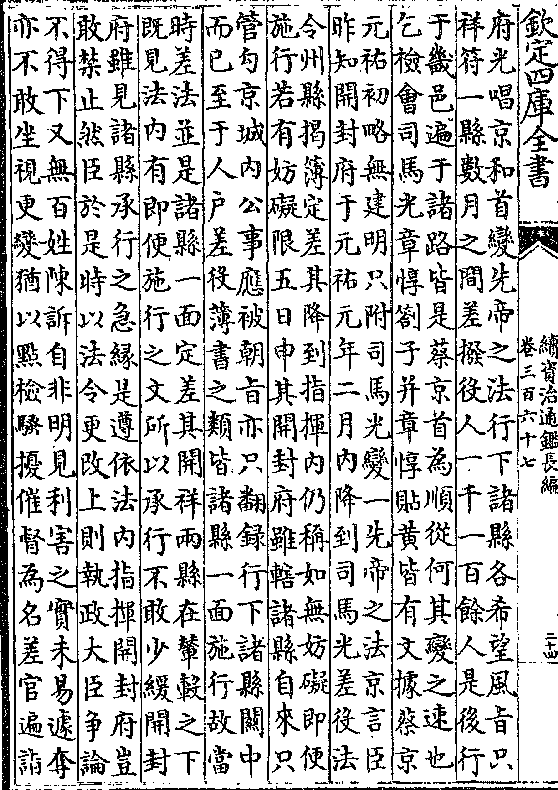 欽定四庫全書
續資治通鑑長編
卷三百六十七
三十四
府光唱京和首變先帝之法行下諸縣各希望風旨只
祥符一縣數月之間差撥役人一千一百餘人是後行
于畿邑遍于諸路皆是蔡京首為順從何其變之速也
乞檢會司馬光章惇劄子并章惇貼黃皆有文據蔡京
元祐初略無建明只附司馬光變一先帝之法京言臣
昨知開封府于元祐元年二月內降到司馬光差役法
令州縣揭簿定差其降到指揮內仍稱如無妨礙即便
施行若有妨礙限五日申其開封府雖轄諸縣自來只
管勾京城內公事應被朝旨亦只翻錄行下諸縣關中
而已至于人户差役簿書之類皆諸縣一面施行故當
時差法並是諸縣一面定差其開祥兩縣在輦轂之下
既見法內有即便施行之文所以承行不敢少緩開封
府雖見諸縣承行之急緣是遵依法內指揮開封府豈
敢禁止然臣於是時以法令更改上則執政大臣爭論
不得下又無百姓陳訴自非明見利害之實未易遽奪
亦不敢坐視更變猶以點檢騷擾催督為名差官遍詣